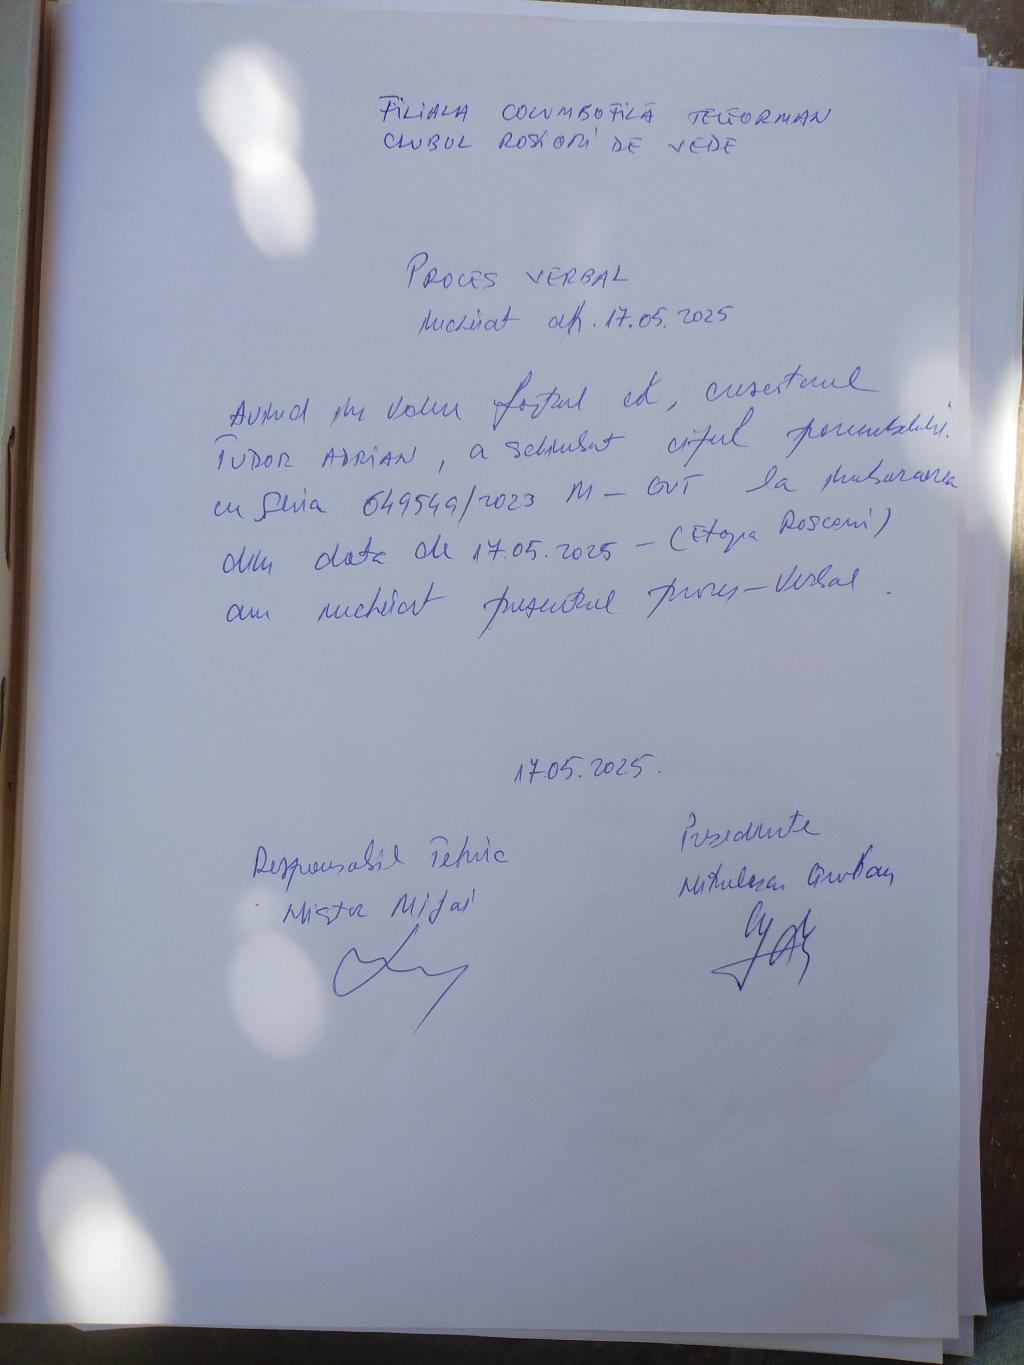 FILIALA COLUMBOFILĂ TELEORMAN
CLUBUL ROSIORI DE VEDE
PROCES VERBAL
Incheiat 17.05.2025
Avind in vedere faptul că, crescatorul
TUDOR ADRIAN, a schimbat cipul porumbelului
cu seria 649549/2023 M - GVT la imbarcarea
din data de 17.05.2025 - (Etapa Roscani)
am incheiat prezentul proces-verbal.
17.05.2025.
Presedinte
Responsabil Tehnic
Mihai